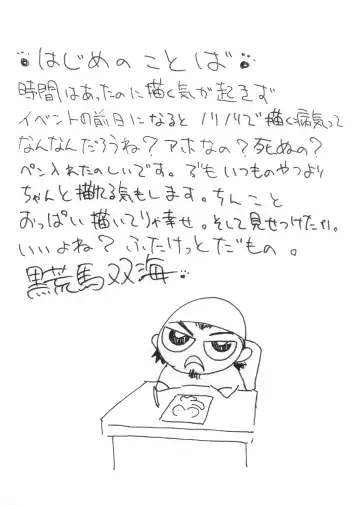 はじめのことば
時間はあったのに描く気が起きず
イベントの前日になるとノリノリで描く病気って
なんなんだろうね?アホなの?死ぬの?
ペン入れたのしいです。でもいつものやつより
ちゃんと描けてる気もします。ちんこと
おっぱい描いてりゃ幸せ。そして見せつけたい。
いいよね?ふたけっとだもの。
黒荒馬双海